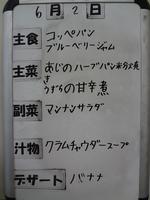 6月2日
主食 コッペパン
ブルーベリージャム
主菜 あじのハーブパン粉焼
き
うずらの甘辛煮
副菜 マンナンサラダ
汁物 クラムチャウダースープ
デザート バナナ